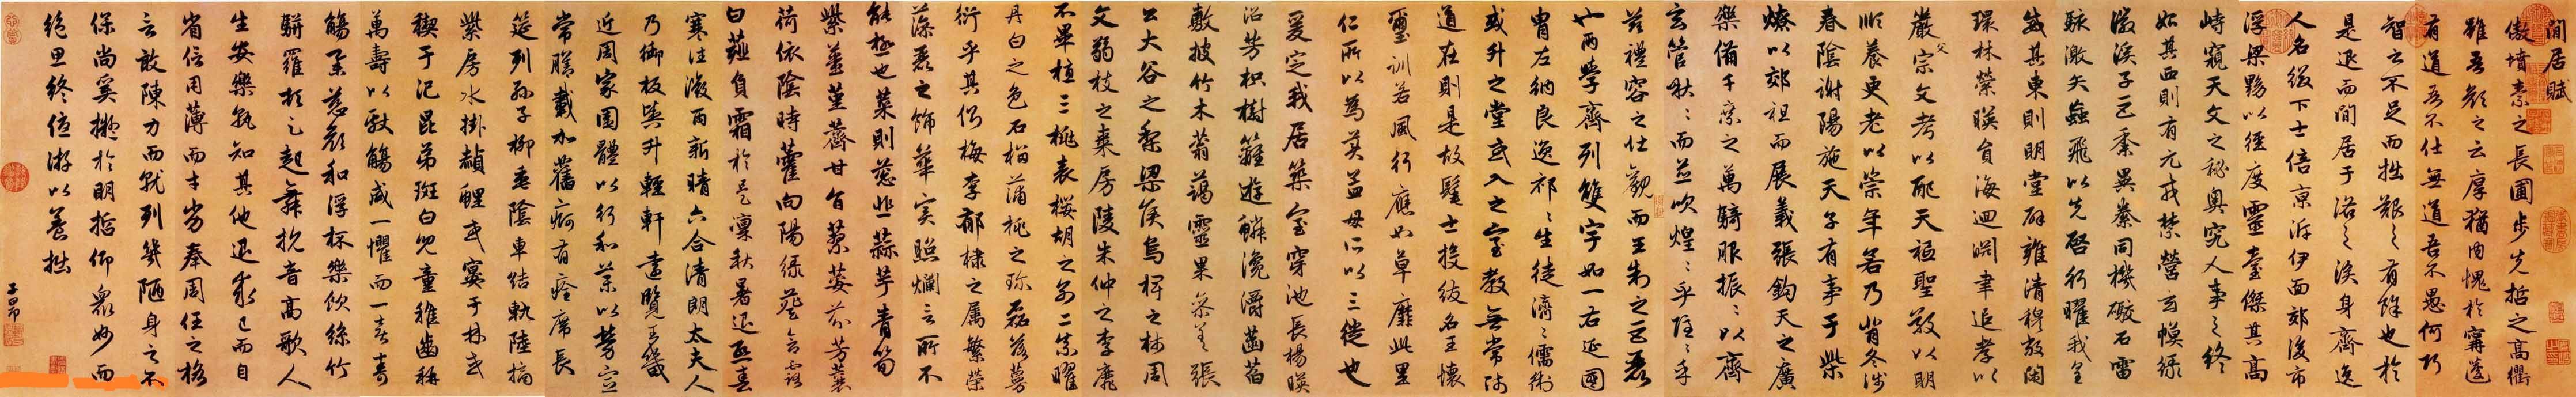 閒居賦
傲墳素之長圃步先哲之高衢
雖吾顏之云厚猶內愧於甯蘧
有道吾不仕無道吾不愚何巧
智之不足而拙艱之有餘也於
是退而閒居于洛之涘身齊逸
人名綴下士倍京泝伊面郊後市
浮梁黝以徑度靈臺傑其高
峙窺天文之秘奧究人事之終
始其西則有元戎禁營玄幙綠
徽溪子巨黍異絭同機礮石雷
駭激矢蝱飛以先啓行曜我皇
威其東則明堂辟雍清穆敞閑
環林縈暎圓海迴淵聿追孝以
嚴父宗文考以配天祗聖敬以明
順養更老以崇年若乃背冬涉
春陰謝陽施天子有事于柴
燎以郊祖而展義張鈞天之廣
樂備千乘之萬騎服振〻以齊
玄管啾〻而並吹煌〻乎隱〻乎
茲禮容之壯觀而王制之巨麗
也兩學齊列雙宇如一右延國
胄左納良逸祁〻生徒濟〻儒術
或升之堂或入之室教無常師
道在則是故髦士投紱名王懷
璽訓若風行應如草靡此里
仁所以為美孟母所以三徙也
爰定我居築室穿池長楊暎
沼芳枳樹籬遊鱗瀺灂菡萏
敷披竹木蓊藹靈果參差張
公大谷之梨梁侯烏椑之柿周
文弱枝之棗房陵朱仲之李靡
不畢植三桃表櫻胡之別二柰曜
丹白之色石榴蒲桃之珍磊落蔓
衍乎其側梅李郁棣之屬繁榮
藻麗之飾華實照爛言所不
能極也菜則蔥韭蒜芋青筍
紫薑堇薺甘旨蓼荽芬芳蘘
荷依陰時藿向陽綠葵含露
白薤負霜於是凜秋暑退熙春
寒往微雨新晴六合清朗太夫人
乃御板輿升輕軒遠覽王畿
近周家園體以行和藥以勞宣
常膳載加舊痾有痊席長
筵列孫子柳垂陰車結軌陸摘
紫房水掛赬鯉或宴于林或
禊于汜昆弟斑白兒童稚齒稱
萬壽以獻觴咸一懼而一喜壽
觴舉慈顏和浮杯樂飲絲竹
駢羅頓足起舞抗音高歌人
生安樂孰知其他退求己而自
省信用薄而才劣奉周任之格
言敢陳力而就列幾陋身之不
保尚奚擬於明哲仰眾妙而
絕思終優游以養拙
子昂